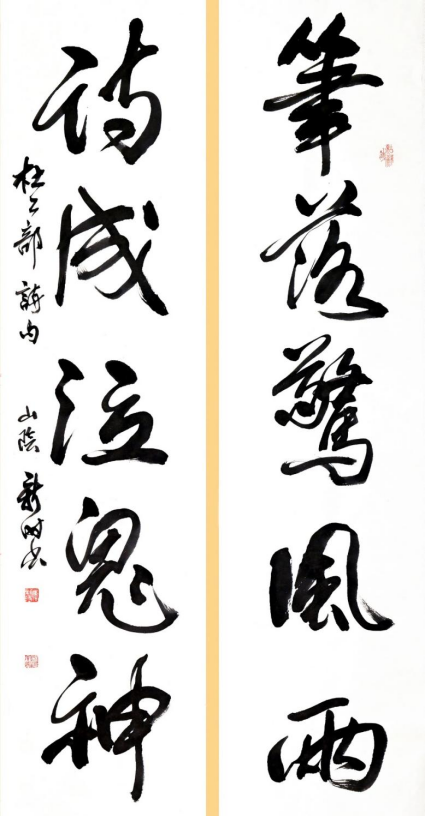 筆落驚風雨
詩成泣鬼神
杜工部詩句
山陰 新時書